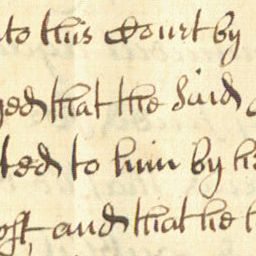 to this Court by
ged that the said
ted to him by
oft, and that he